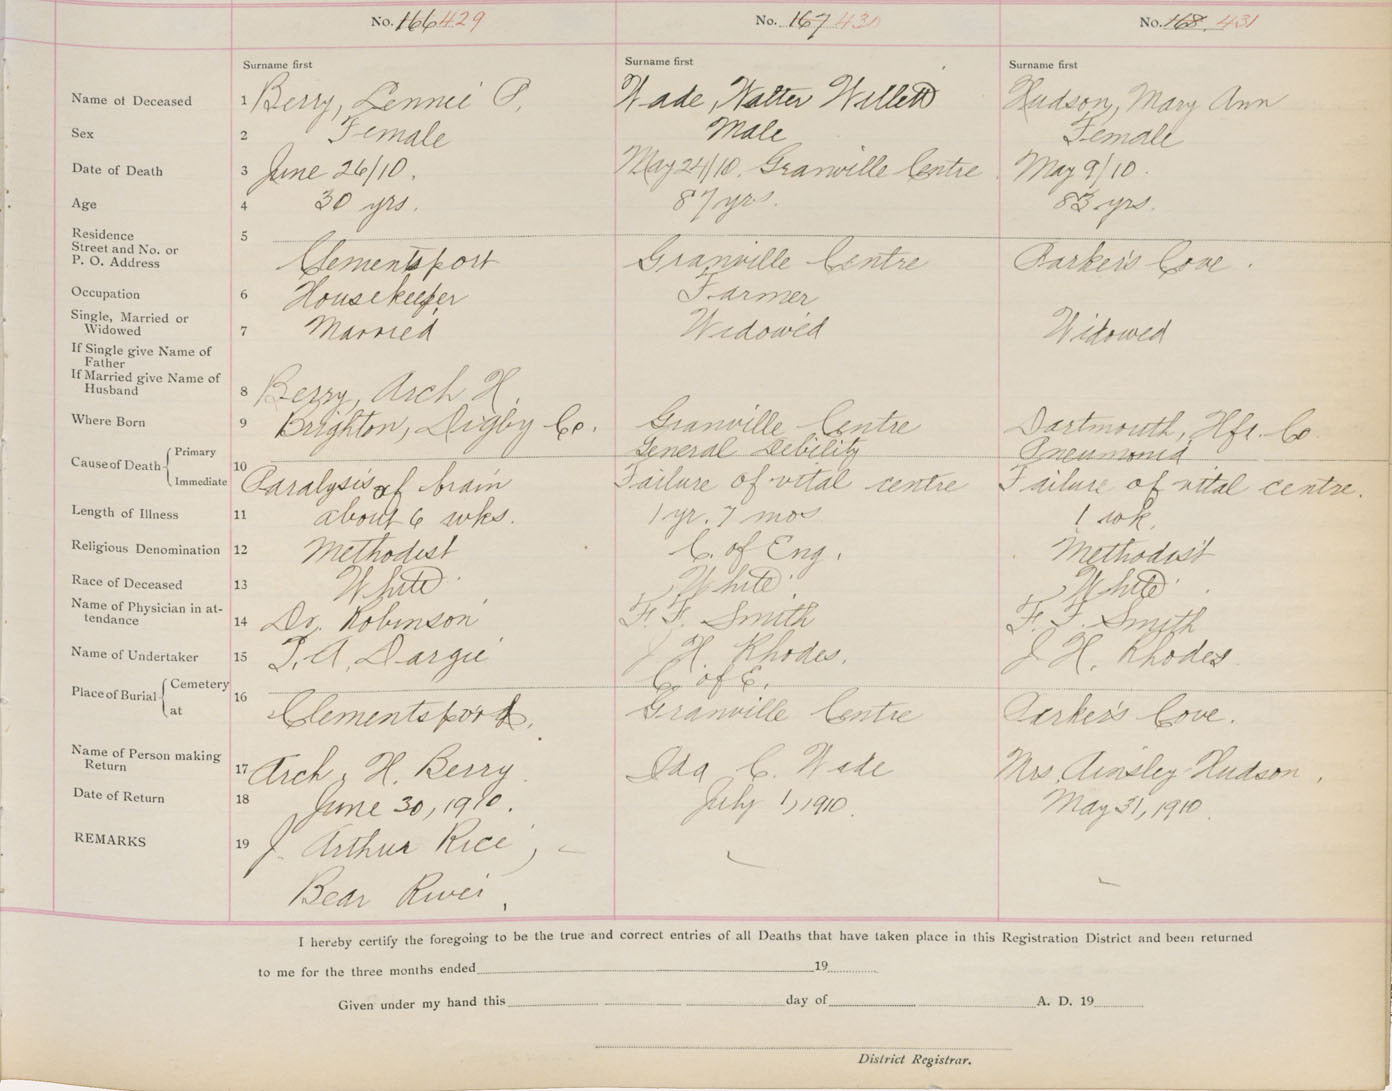 No. 166 429 No. 167 430 No. 168 431
Surname first Surname first Surname first
Name of Deceased 1 Berry, Lennie P. Wade, Walter Willett Hudson, Mary Ann
Sex 2 Female Male Female
Date of Death 3 June 26/10. May 24/10. Granville Centre May 9/10.
Age 4 30 yrs. 87 yrs. 83 yrs.
Residence 5
Street and No. or
P. O. Address Clementsport Granville Centre Parker's Cove.
Occupation 6 Housekeeper Farmer
Single, Married or
Widowed 7 Married Widowed Widowed
If Single give Name of
Father
If Married give Name of
Husband 8 Berry, Arch H.
Where Born 9 Brighton, Digby Co. Granville Centre Dartmouth, Hfx. Co
Cause of Death Primary 10 General Debility Pneumonia
Immediate Paralysis of brain Failure of vital centre Failure of vital centre.
Length of Illness 11 about 6 wks. 1 yr. 7 mos 1 wk.
Religious Denomination 12 Methodist C. of Eng. Methodist
Race of Deceased 13 White White White
Name of Physician in at-
tendance 14 Dr. Robinson F. F. Smith F. F. Smith
Name of Undertaker 15 T. A. Dargie J. H. Rhodes. J. H. Rhodes
Place of Burial Cemetery 16 C. of E.
at Clementsport. Granville Centre Parker's Cove.
Name of Person making
Return 17 Arch. H. Berry Ida C. Wade Mrs. Ainsley Hudson.
Date of Return 18 June 30, 1910. July 1, 1910. May 31, 1910.
REMARKS 19 J. Arthur Rice,
Bear River,
I hereby certify the foregoing to be the true and correct entries of all Deaths that have taken place in this Registration District and been returned
to me for the three months ended 19
Given under my hand this day of A. D. 19
District Registrar.